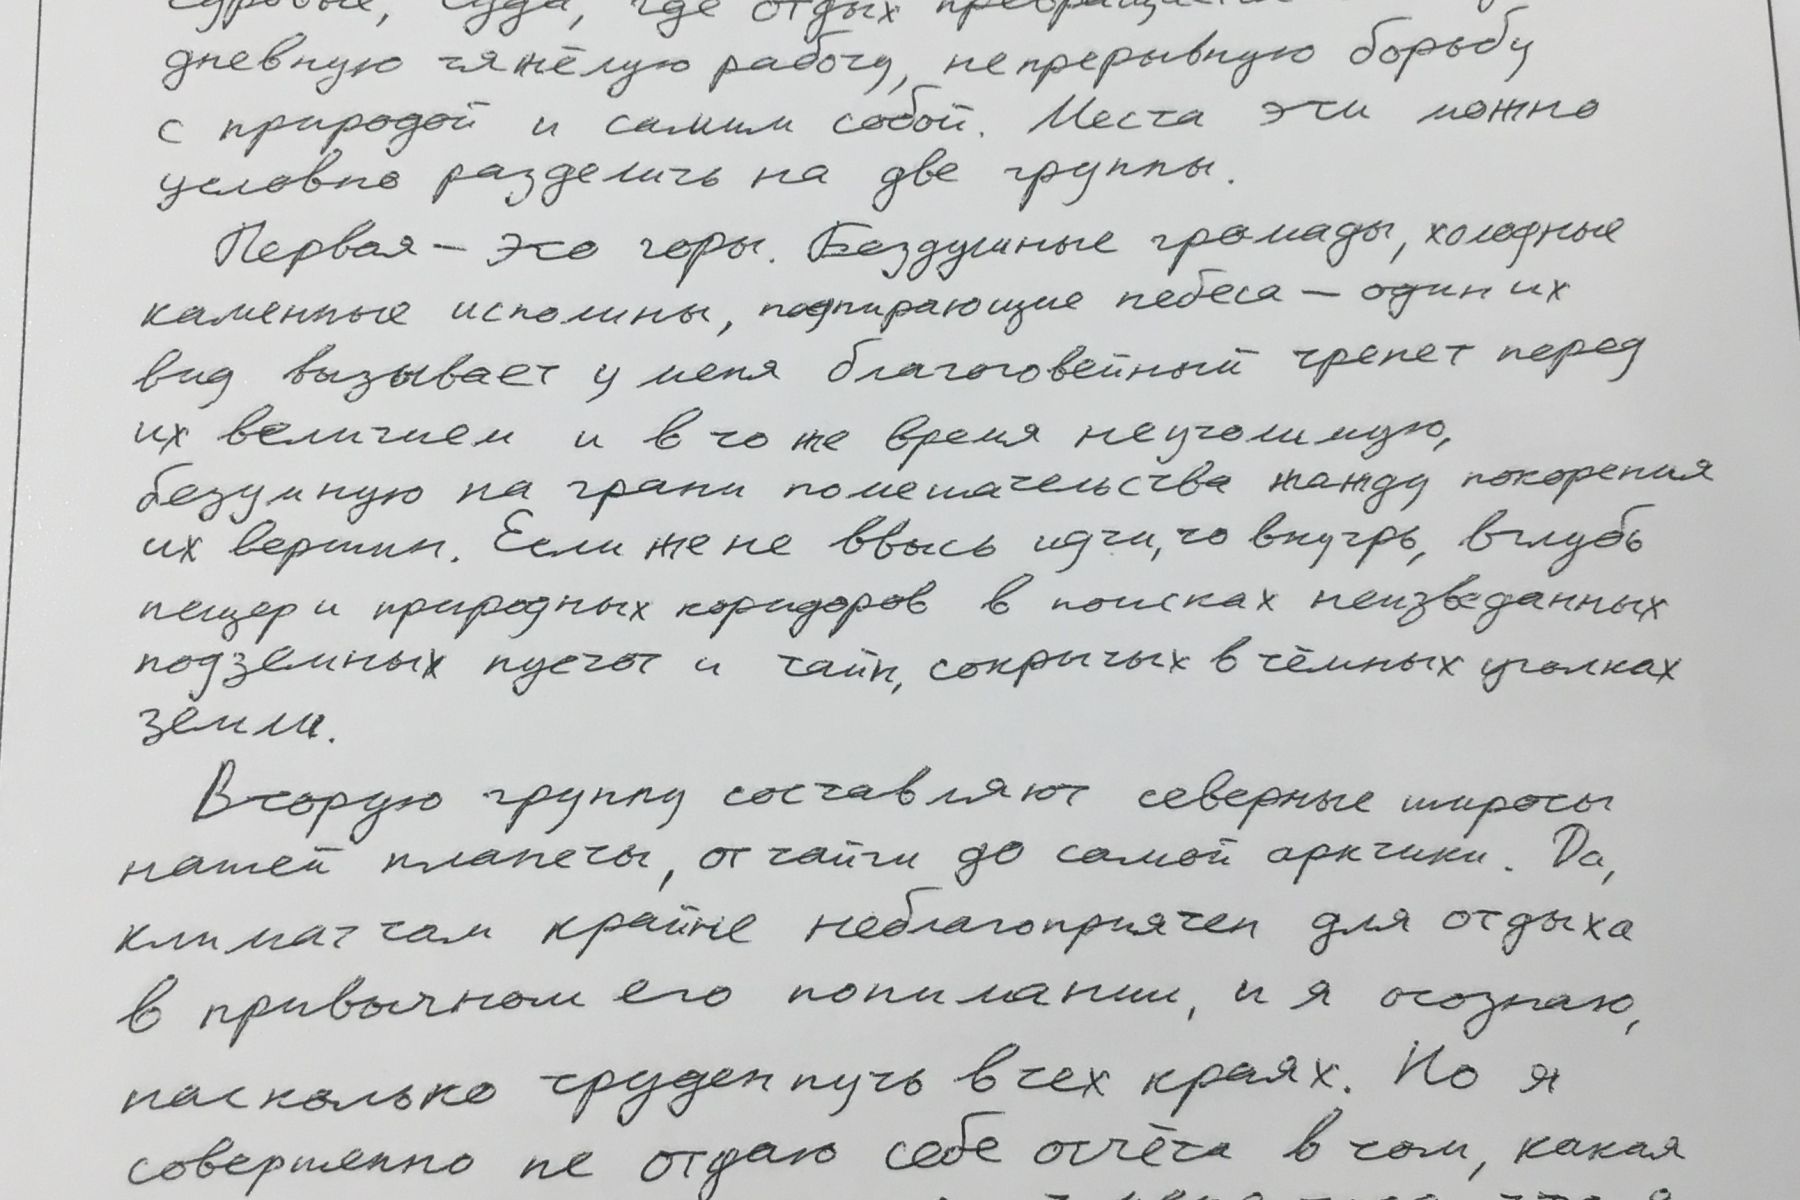 суровые, суда, где отдых превращается
дневную тяжёлую работу, непрерывную борьбу
с природой и самим собой. Места эти можно
условно разделить на две группы.
Первая — это горы. Бездушные громады, холодные
каменные исполины, подпирающие небеса — один их
вид вызывает у меня благоговейный трепет перед
их величием и в то же время неутолимую,
безумную на грани помешательства жажду покорения
их вершин. Если же не ввысь идти, то внутрь, вглубь
пещер и природных коридоров в поисках неизведанных
подземных пустот и тайн, сокрытых в тёмных уголках
земли.
Вторую группу составляют северные широты
нашей планеты, от тайги до самой арктики. Да,
климат там крайне неблагоприятен для отдыха
в привычном его понимании, и я осознаю,
насколько труден путь в тех краях. Но я
совершенно не отдаю себе отчёта в том, какая